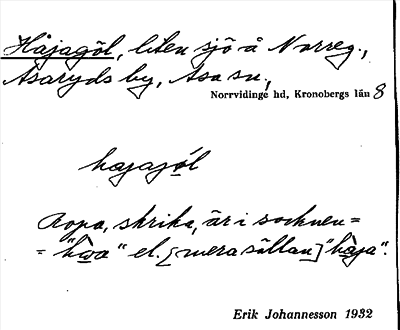 Håjagöl, liten sjö å Norreg.,
Asaryds by, Asa sn,
Norrvidinge hd, Kronobergs län 8
hajajo̱l
Ropa, skrika, är i socknen=
= "hwa" el. [mera sällan] "håja".
Erik Johannesson 1932